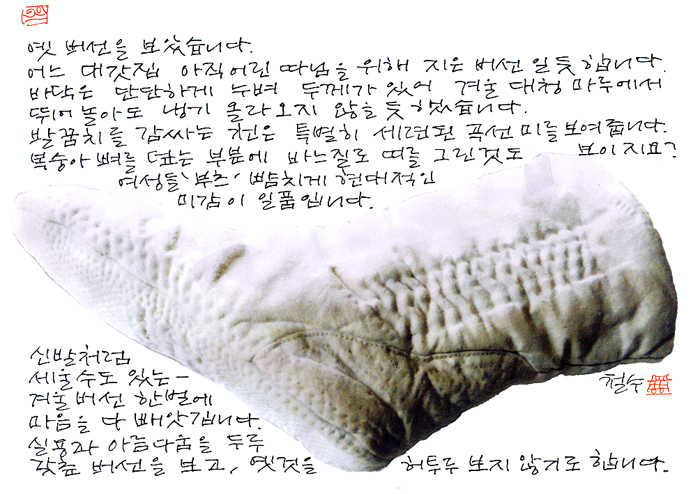 옛 버선을 보았습니다.
어느 대갓집 아직 어린 따님을 위해 지은 버선 일듯 합니다.
바닥은 단단하게 누벼 두께가 있어 겨울 대청 마루에서
뛰어 놀아도 냉기 올라오지 않을 듯 했습니다.
발꿈치를 감싸는 천은 특별히 세련된 곡선 미를 보여줍니다.
복숭아 뼈를 덮는 부분에 바느질로 띠를 그린것도 보이지요?
여성들 '부츠' 뺨치게 현대적인
미감이 일품입니다.
신발처럼
세울수도 있는 –
겨울 버선 한벌에
마음을 다 빼앗깁니다.
실용과 아름다움을 두루
갖춘 버선을 보고, 옛것을 허투루 보지 않기로 합니다.
철수